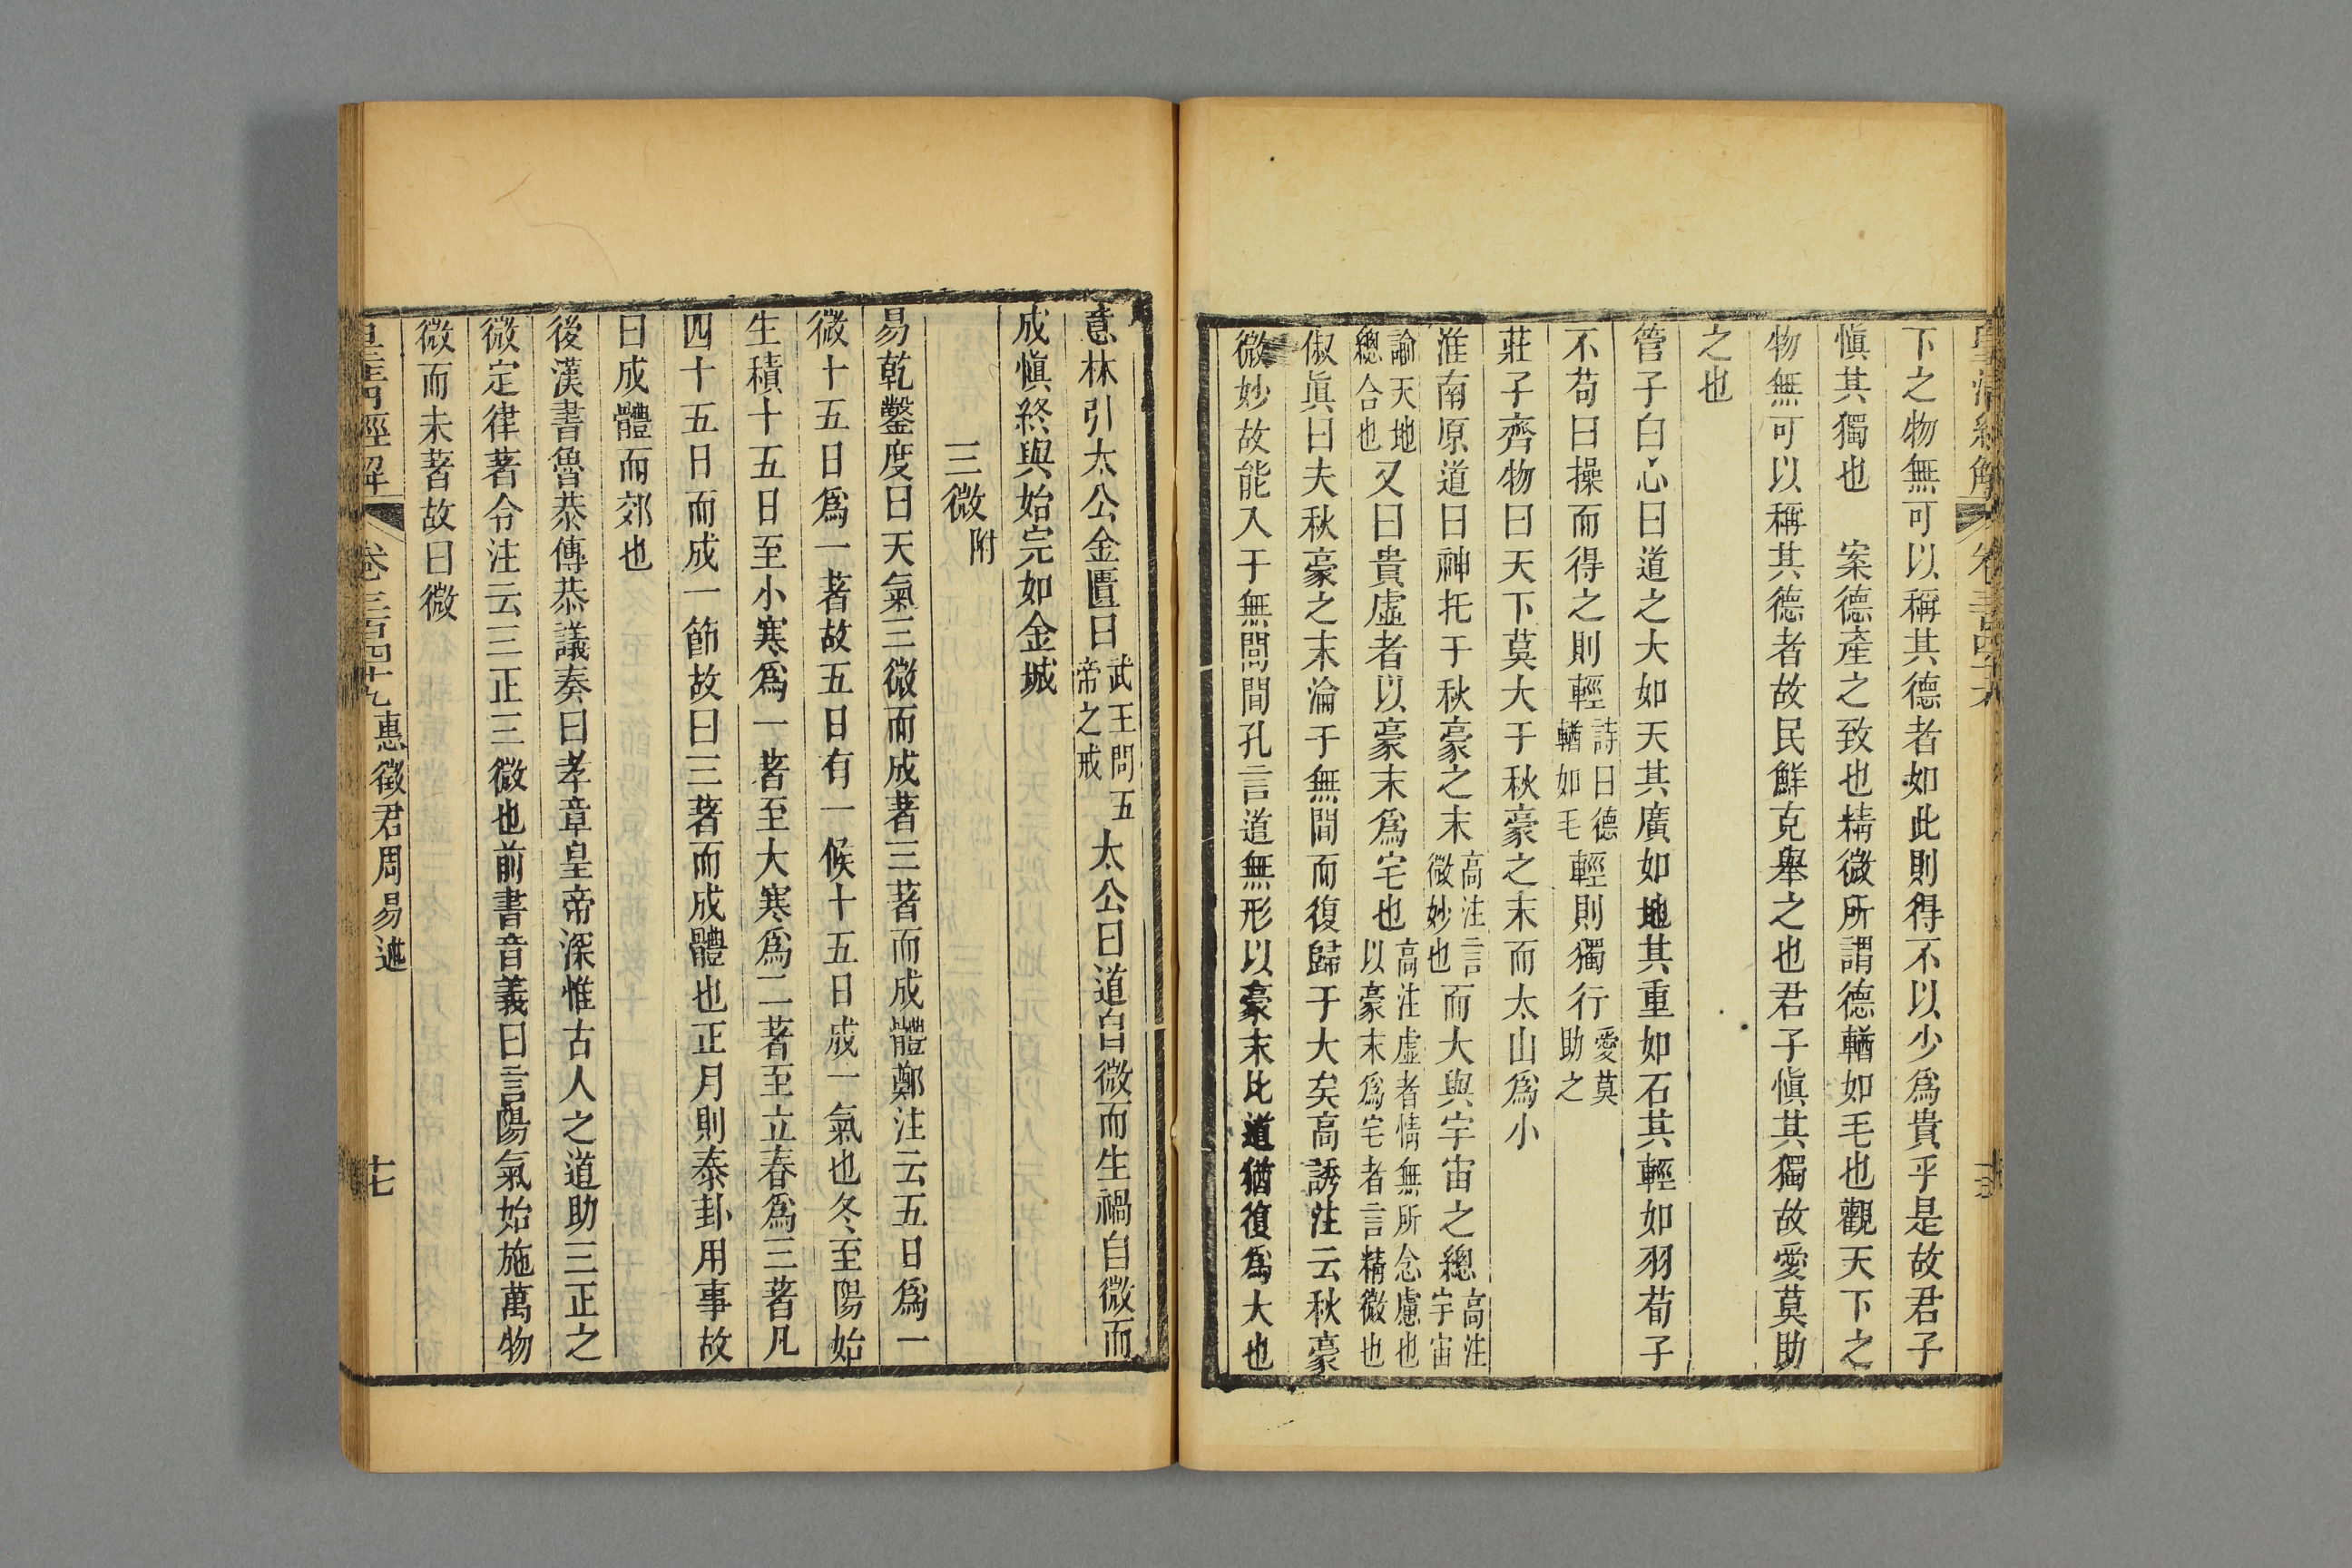 皇清經解 卷三百四十九
下之物無可以稱其德者如此則得不以少爲貴乎是故君子
愼其獨也 案德產之致也精微所謂德輶如毛也觀天下之
物無可以稱其德者故民鮮克舉之也君子愼其獨故愛莫助
之也
管子白心曰道之大如天其廣如地其重如石其輕如羽荀子
不苟曰操而得之則輕詩曰德輶如毛輕則獨行愛莫助之
莊子齊物曰天下莫大于秋豪之末而太山爲小
淮南原道曰神托于秋豪之末高注言微妙也而大與宇宙之總高注宇宙
諭天地總合也又曰貴虛者以豪末爲宅也高注虛者情無所念慮也以豪末爲宅者言精微也
俶眞曰夫秋豪之末淪于無間而復歸于大矣高誘注云秋豪
微妙故能入于無閒間孔言道無形以豪末比道猶復爲大也
意林引太公金匱曰武王問五帝之戒太公曰道自微而生禍自微而
成愼終與始完如金城
三微附
易乾鑿度曰天氣三微而成著三著而成體鄭注云五日爲一
微十五日爲一著故五日有一候十五日成一氣也冬至陽始
生積十五日至小寒爲一著至大寒爲二著至立春爲三著凡
四十五日而成一節故曰三著而成體也正月則泰卦用事故
曰成體而郊也
後漢書魯恭傳恭議奏曰孝章皇帝深惟古人之道助三正之
微定律著令注云三正三微也前書音義曰言陽氣始施萬物
微而未著故曰微
皇清經解 卷三百四十九 惠徵君周易述 十七